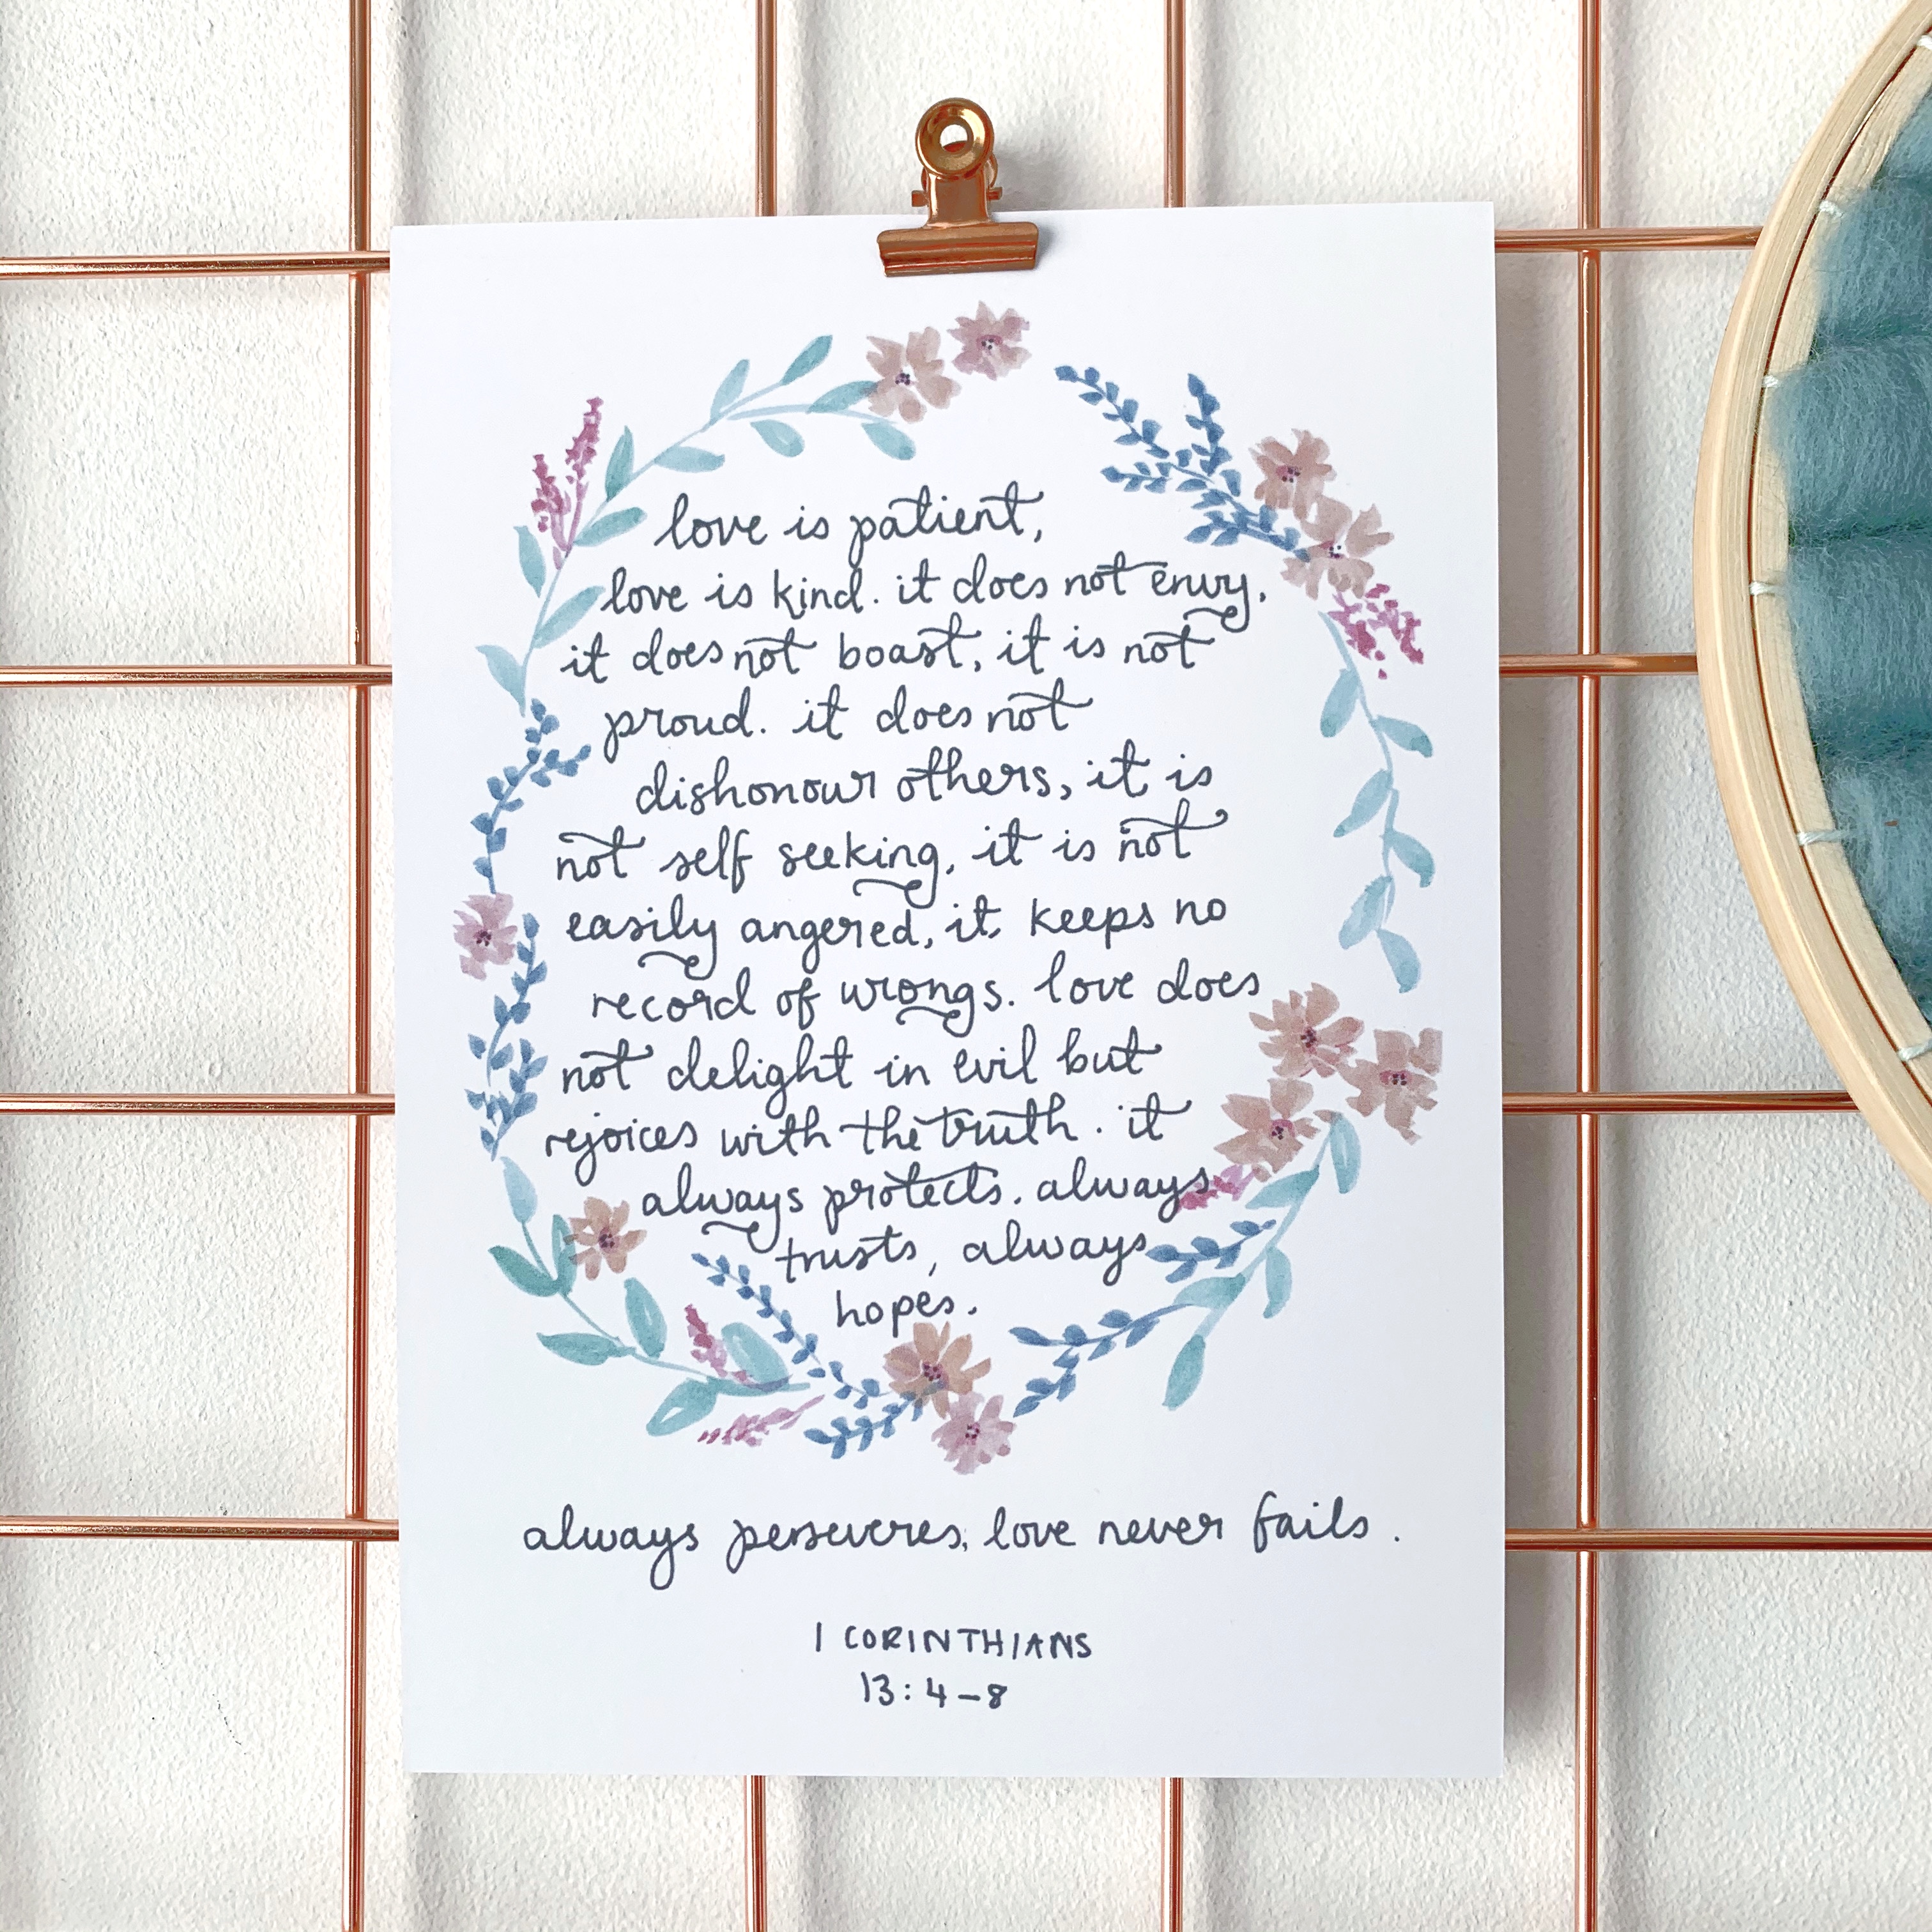 love is patient,
love is kind. it does not envy,
it does not boast, it is not
proud. it does not
dishonour others, it is
not self seeking, it is not
easily angered, it keeps no
record of wrongs. love does
not delight in evil but
rejoices with the truth. it
always protects, always
trusts, always
hopes,
always perseveres, love never fails.
1 CORINTHIANS
13:4-8